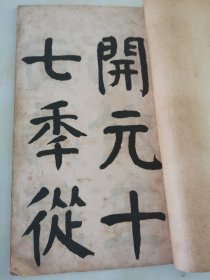 開元十
七季從